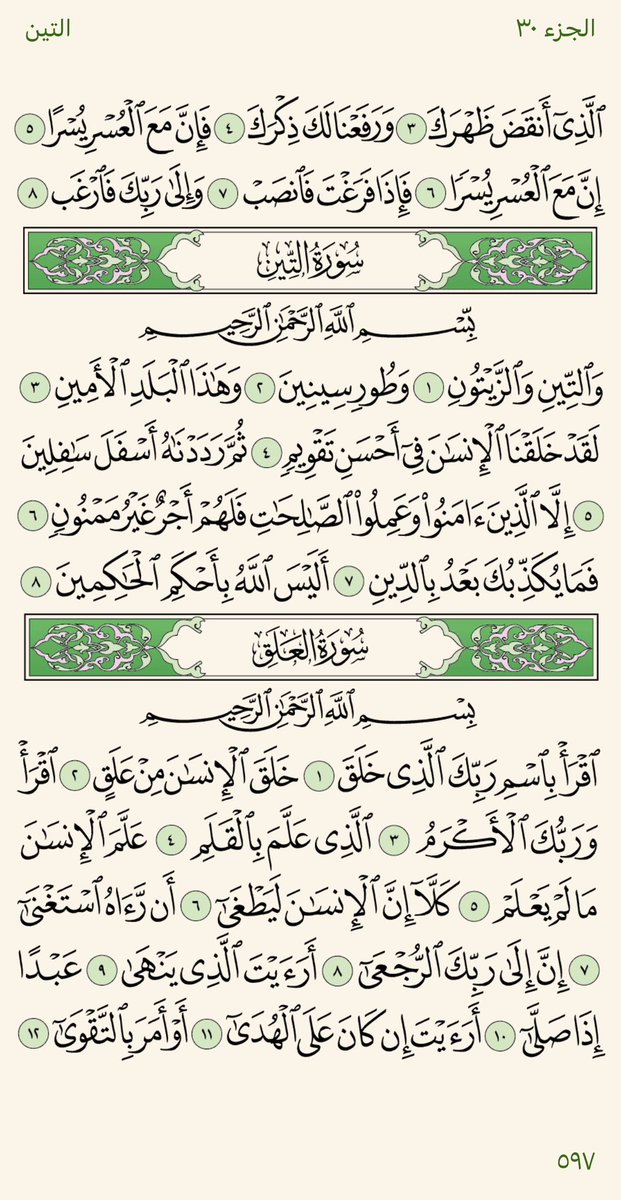 الجزء ٣٠
التين
ٱلَّذِىٓ أَنقَضَ ظَهْرَكَ ٣ وَرَفَعْنَا لَكَ ذِكْرَكَ ٤ فَإِنَّ مَعَ ٱلْعُسْرِ يُسْرًا ٥
إِنَّ مَعَ ٱلْعُسْرِ يُسْرًا ٦ فَإِذَا فَرَغْتَ فَٱنصَبْ ٧ وَإِلَىٰ رَبِّكَ فَٱرْغَب ٨
سُورَةُ التِّينِ
بِّسْمِ ٱللَّهِ ٱلرَّحْمَٰنِ ٱلرَّحِيمِ
وَٱلتِّينِ وَٱلزَّيْتُونِ ١ وَطُورِ سِينِينَ ٢ وَهَٰذَا ٱلْبَلَدِ ٱلْأَمِينِ ٣
لَقَدْ خَلَقْنَا ٱلْإِنسَٰنَ فِىٓ أَحْسَنِ تَقْوِيمٍ ٤ ثُمَّ رَدَدْنَٰهُ أَسْفَلَ سَٰفِلِينَ
٥ إِلَّا ٱلَّذِينَ ءَامَنُوا۟ وَعَمِلُوا۟ ٱلصَّٰلِحَٰتِ فَلَهُمْ أَجْرٌ غَيْرُ مَمْنُونٍ ٦
فَمَا يُكَذِّبُكَ بَعْدُ بِٱلدِّينِ ٧ أَلَيْسَ ٱللَّهُ بِأَحْكَمِ ٱلْحَٰكِمِينَ ٨
سُورَةُ العَلَقِ
بِسْمِ ٱللَّهِ ٱلرَّحْمَٰنِ ٱلرَّحِيمِ
ٱقْرَأْ بِٱسْمِ رَبِّكَ ٱلَّذِى خَلَقَ ١ خَلَقَ ٱلْإِنسَٰنَ مِنْ عَلَقٍ ٢ ٱقْرَأْ
وَرَبُّكَ ٱلْأَكْرَمُ ٣ ٱلَّذِى عَلَّمَ بِٱلْقَلَمِ ٤ عَلَّمَ ٱلْإِنسَٰنَ
مَا لَمْ يَعْلَمْ ٥ كَلَّآ إِنَّ ٱلْإِنسَٰنَ لَيَطْغَىٰٓ ٦ أَن رَّءَاهُ ٱسْتَغْنَىٰٓ
٧ إِنَّ إِلَىٰ رَبِّكَ ٱلرُّجْعَىٰٓ ٨ أَرَءَيْتَ ٱلَّذِى يَنْهَىٰ ٩ عَبْدًا
إِذَا صَلَّىٰٓ ١٠ أَرَءَيْتَ إِن كَانَ عَلَى ٱلْهُدَىٰٓ ١١ أَوْ أَمَرَ بِٱلتَّقْوَىٰٓ ١٢
٥٩٧